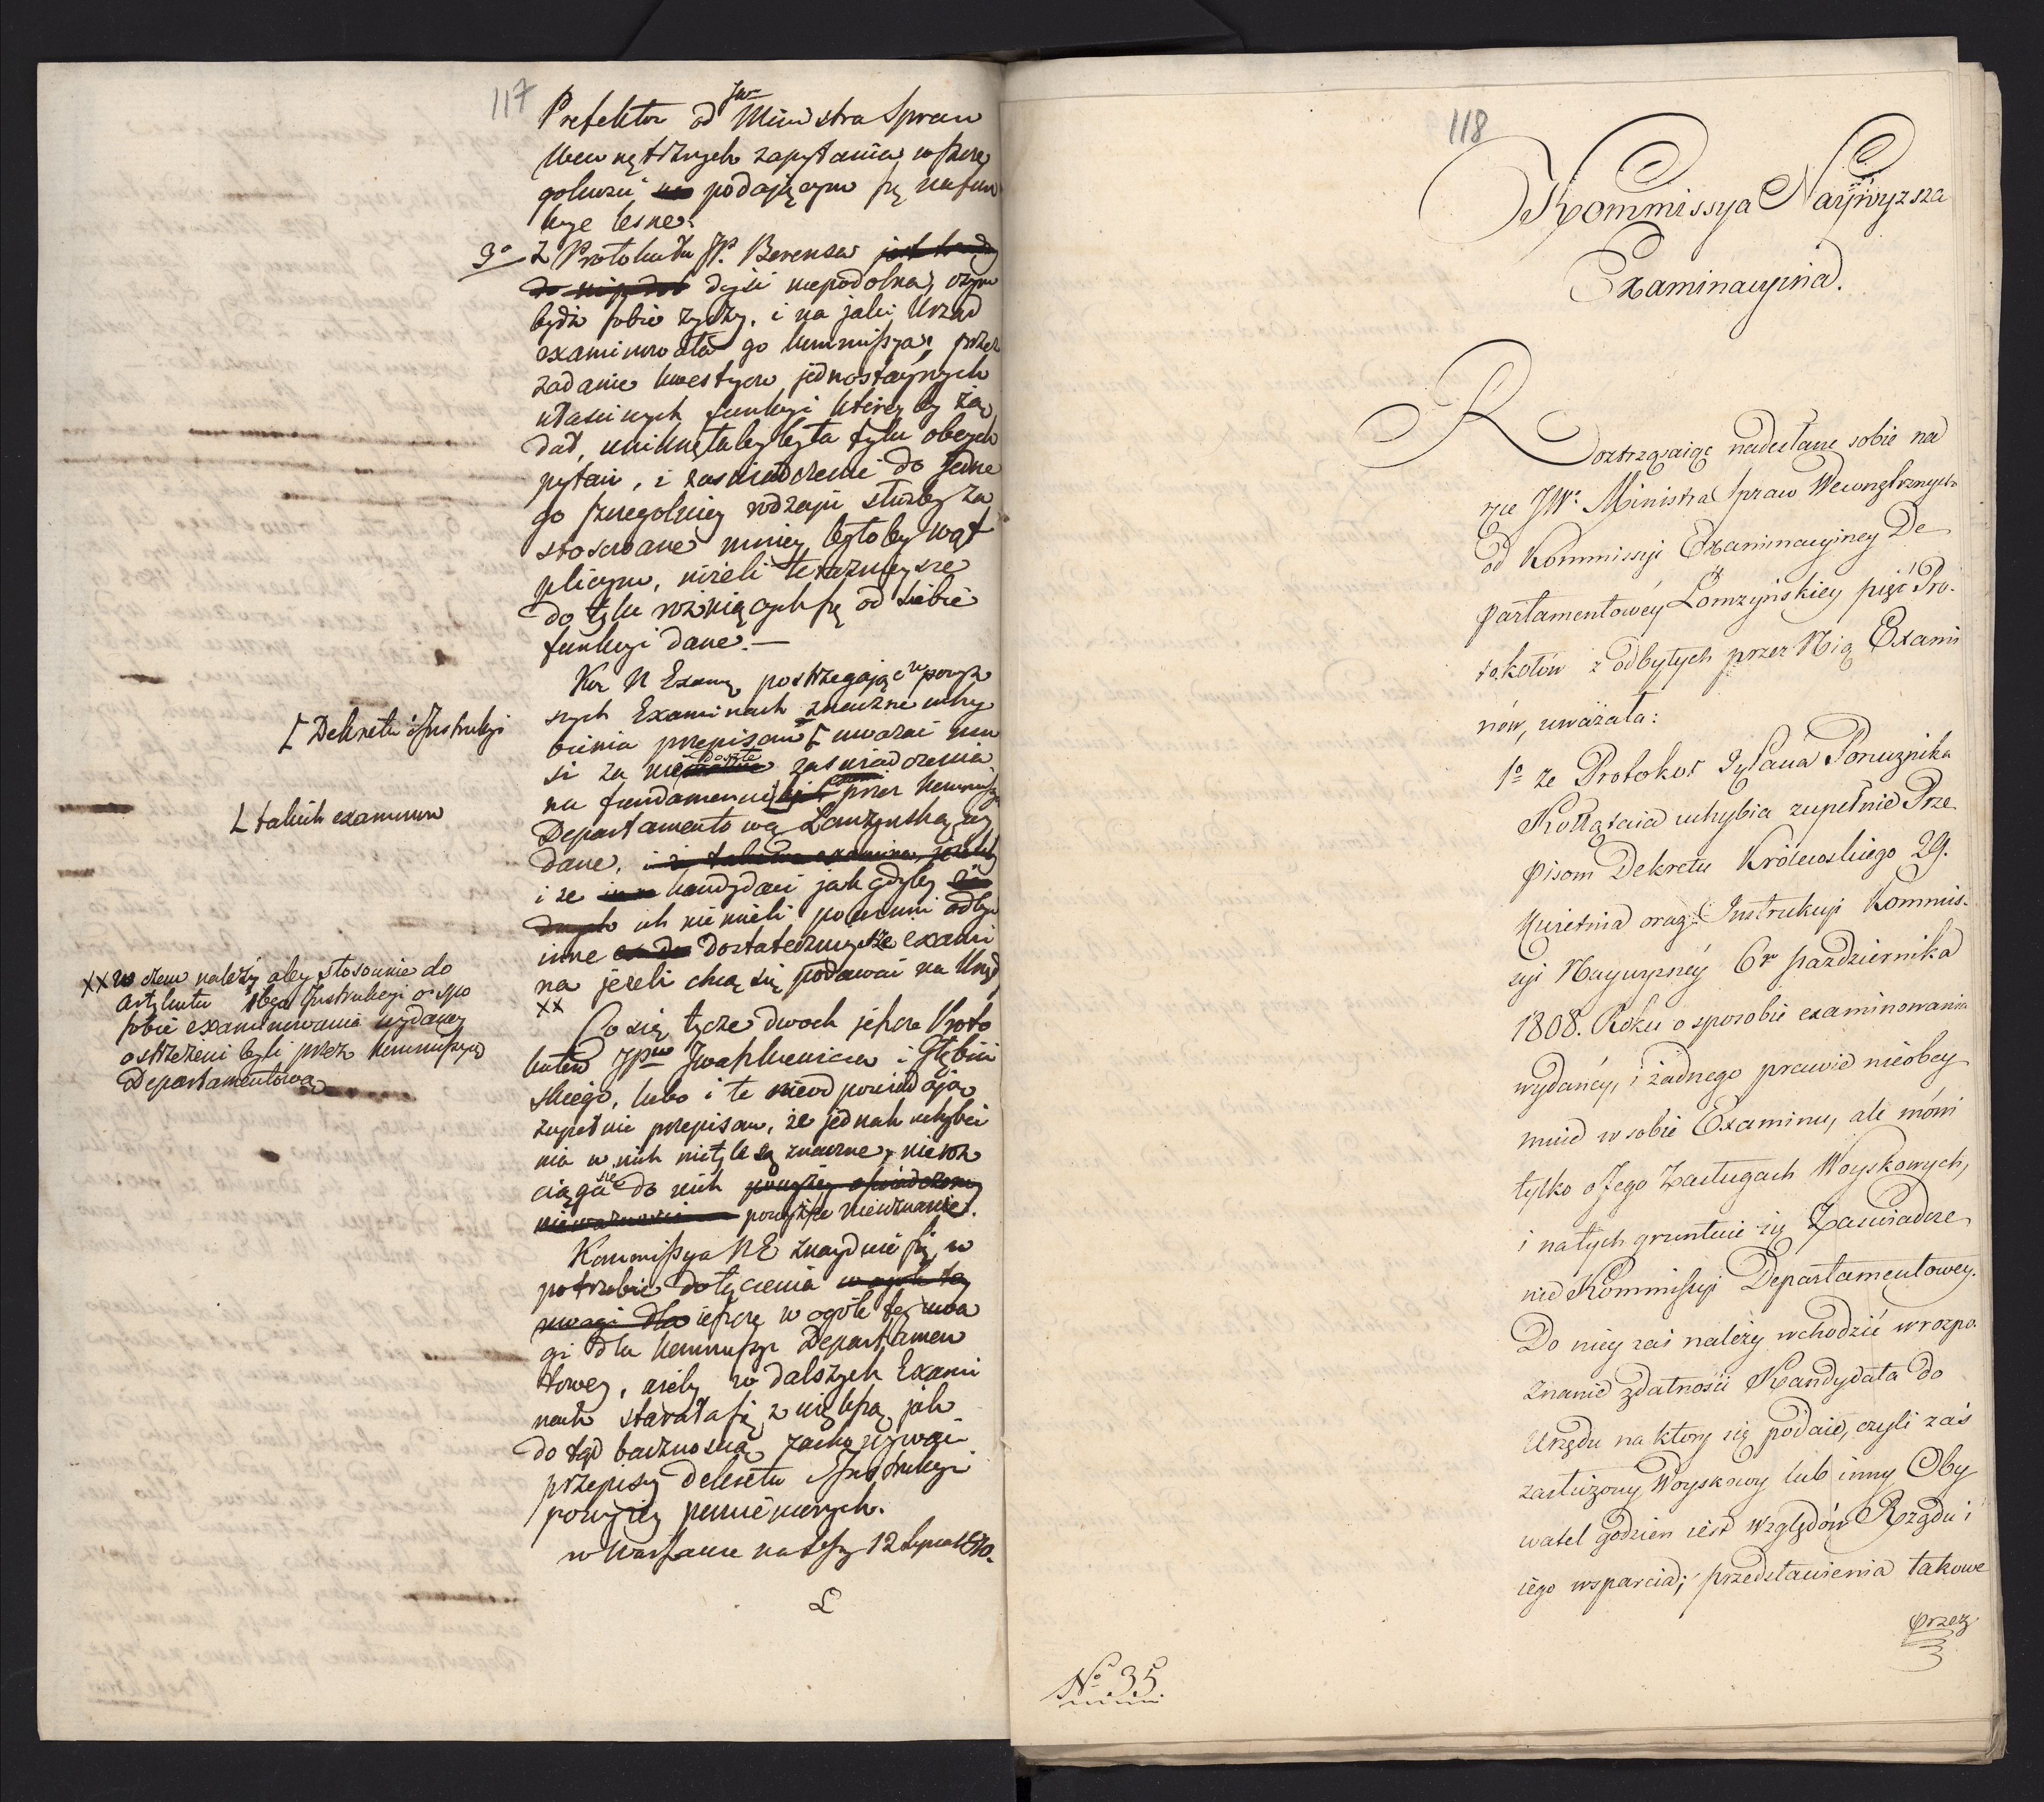 117
Prefektów od JW Ministra Spraw
Wewnętrznych zapytania, w szcze
gólności podającym się na fun
kcye leśne.
3o Z Protokułu JP. Berensa
dojść niepodobna, czym
bydź sobie życzy, i na jaki Urząd
examinowała go Kommissya; przez
zadanie kwestyow jednostaynych
właściwych funkcyi którey by żą
dał, uniknęłaby była tylu obcych
pytań, i zaświadczenie do jedne
go szczególniey rodzaju służby za
stosowane mniey byłoby wąt
pliwym, niżeli teraznieysze
do tylu rożniących się od siebie
funkcyi dane. —
Ko N Exam. postrzegając w powyż
szych Examinach znaczne uchy
bienia przepisom [ uważać mu
si za nie zaświadczenia
na fundamencie [ przez Kommissyą
Departamentową Łomżyńską wy
dane,
i że kandydaci jak gdyby
ich nie mieli powinni odbyć
inne dostatecznieysze exami
na jeżeli chcą się podawać na Urząd
XX
[ Dekretu i Instrukcyi
[ takich examinow
XX w czem należy aby stosownie do
artykułu 16go Instrukcyi o spo
sobie examinowania wydaney
ostrzeżeni byli przez Kommissyą
Departamentową
Co się tycze dwoch jeszcze Proto
kułów JPów Iwaszkiewicza i Głębic
kiego, lubo i te nieodpowiadają
zupełnie przepisom, że jednak uchybie
nia w nich nietyle są znaczne, nieroz
ciąga się do nich powyższe uprzedzone
powyższe nieuznanie.
Kommissya NE znayduie się w
potrzebie dołączenia w ogóle tey
uwagi dla jeszcze w ogóle tey uwa
gi dla Kommissyi Departamen
towey, ażeby w dalszych Exami
nach starała się z większą jak
dotąd bacznością zachowywać
przepisy Dekretu i Instrukcyi
powyżey pomienionych.
w Warszawie na Sessyi 12 Lipca 1810.
118
Kommissya Naywyzsza
Examinacyina.
Roztrząsaiąc nadesłane sobie na
ręce JWo Ministra Spraw Wewnętrznych
od Kommissyi Examinacyiney De
partamentowéy Łomżyńskiey pięć Pro-
tokołów z odbytych przez Nią Exami
nów, uważała:
1o że Protokoł Jgłaua Porucznika
Kołłątaia uchybia zupełnie Prze
pisom Dekretu Królewskiego 29.
Kwietnia oraz Instrukcyi Kommis-
syi Naywyższéy 6r Października
1808. Roku o sposobie examinowania
wydanéy, i żadnego prawie nieobey
muie w sobie Examinu, ale mówi
tylko o Jego Zasługach Woyskowych,
i na tych gruntuie się Zaswiadcze
nie Kommissyi Departamentowey.
Do niey zaś należy wchodzić w rozpo-
znanie zdatności Kandydata do
Urzędu na który się podaie, czyli zaś
zasłużony Woyskowy lub inny Oby
watel godzien iest względów Rządu i
iego wsparcia; przedstawienia takowe
przez
No 35.